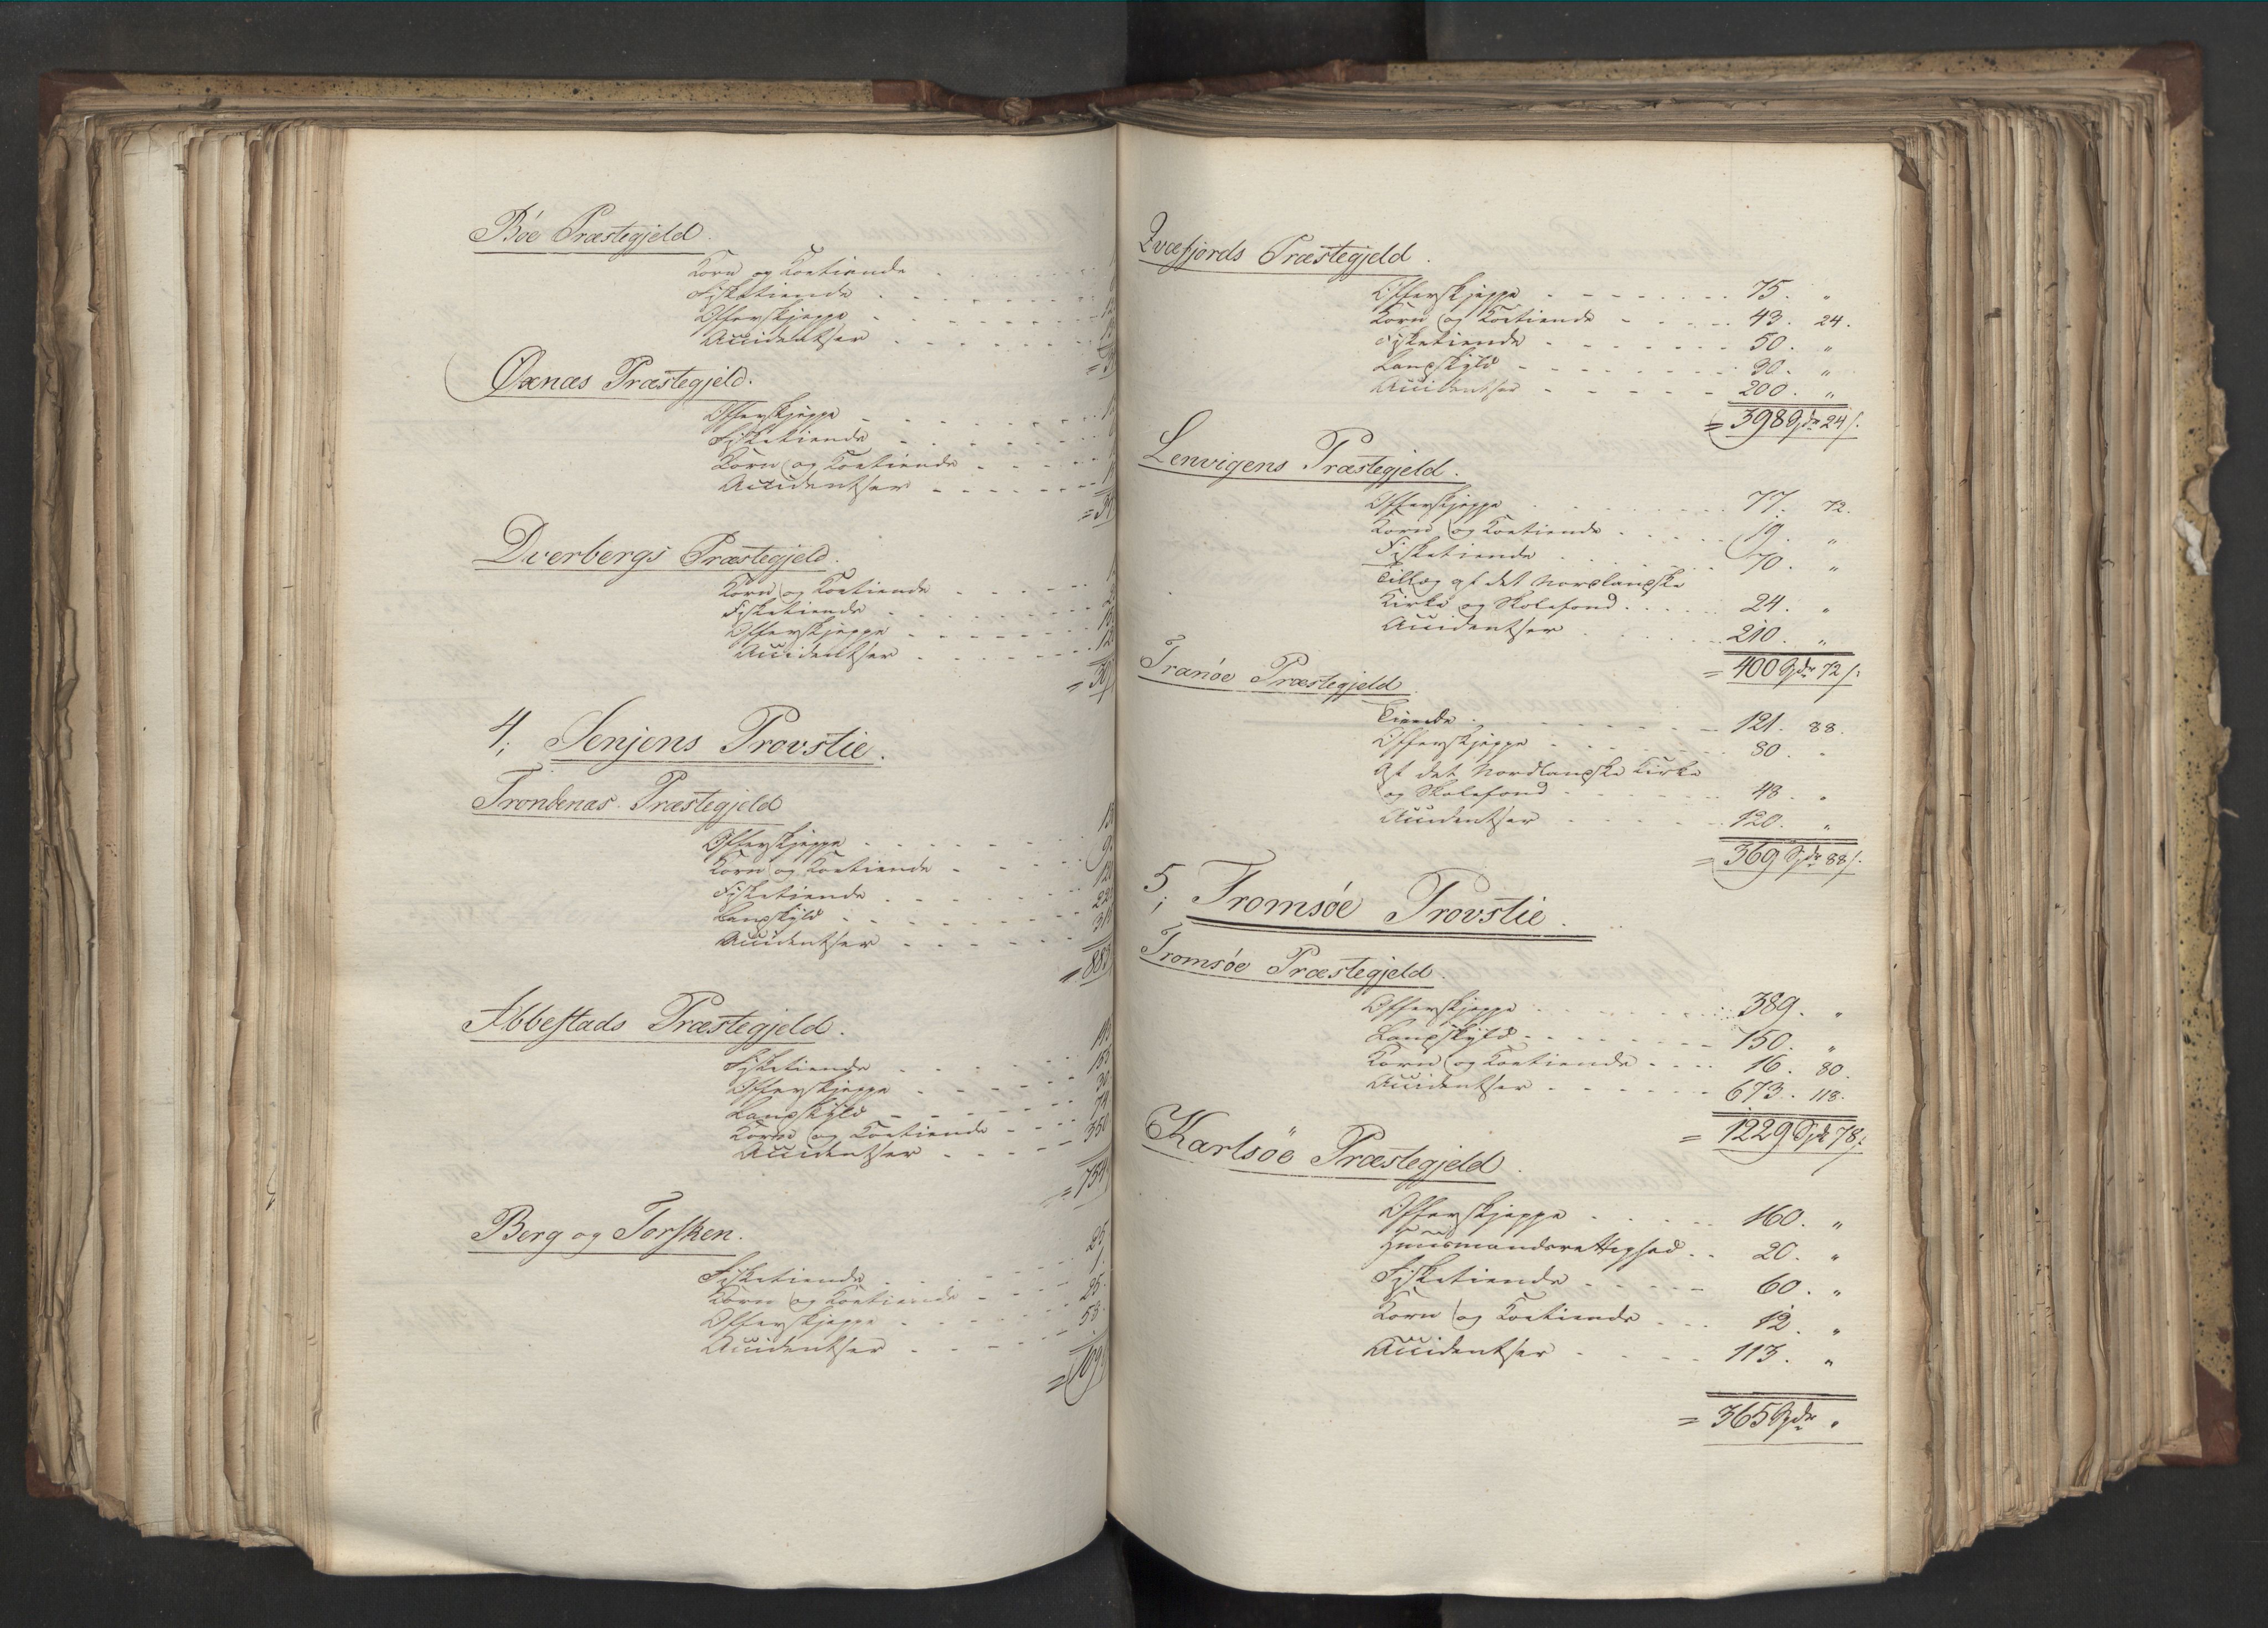 Böe Præstegjeld.
Korn og Koetiende
Fisketiende
Offerskjeppe
Accidentser
Öxnæs Præstegjeld.
Offerskjeppe
Fisketiende
Korn og Koetiende
Accidentser
Dverbergs Præstegjeld.
Korn og Koetiende
Fisketiende
Offerskjeppe
Accidentser
4, Senjens Provstie.
Trondenæs Præstegjeld
Offerskjeppe
Korn og Koetiende
Fisketiende
Landskyld
Accidentser
Abbestads Præstegjeld.
Fisketiende
Offerskjeppe
Landskyld
Korn og Koetiende
Accidentser
Berg og Torsken.
Fisketiende
Korn og Koetiende
Offerskjeppe
Accidentser
Qvæfjords Præstegjeld.
Offerskjeppe 75. "
Korn og Koetiende 43. 24.
Fisketiende 50. "
Landskyld 30. "
Accidentser 200. "
= 398 Spdr 24 s.
Lenvigens Præstegjeld.
Offerskjeppe 77. 72.
Korn og Koetiende 19. "
Fisketiende 70. "
Tillæg af det Nordlandske
Kirke og Skolefond 24. "
Accidentser 210. "
= 400 Spdr 72 s.
Tranöe Præstegjeld
Tiende 121. 88.
Offerskjeppe 80. "
Af det Nordlandske Kirke
og Skolefond 48. "
Accidentser 120. "
= 369 Spdr 88 s.
5, Tromsöe Provstie.
Tromsöe Præstegjeld.
Offerskjeppe 389. "
Landskyld 150. "
Korn og Koetiende 16. 80.
Accidentser 673. 118.
= 1229 Spdr 78 s.
Karlsöe Præstegjeld.
Offerskjeppe 160. "
Huusmandsrettighed 20. "
Fisketiende 60. "
Korn og Koetiende 12. "
Accidentser 113. "
= 365 Spdr "